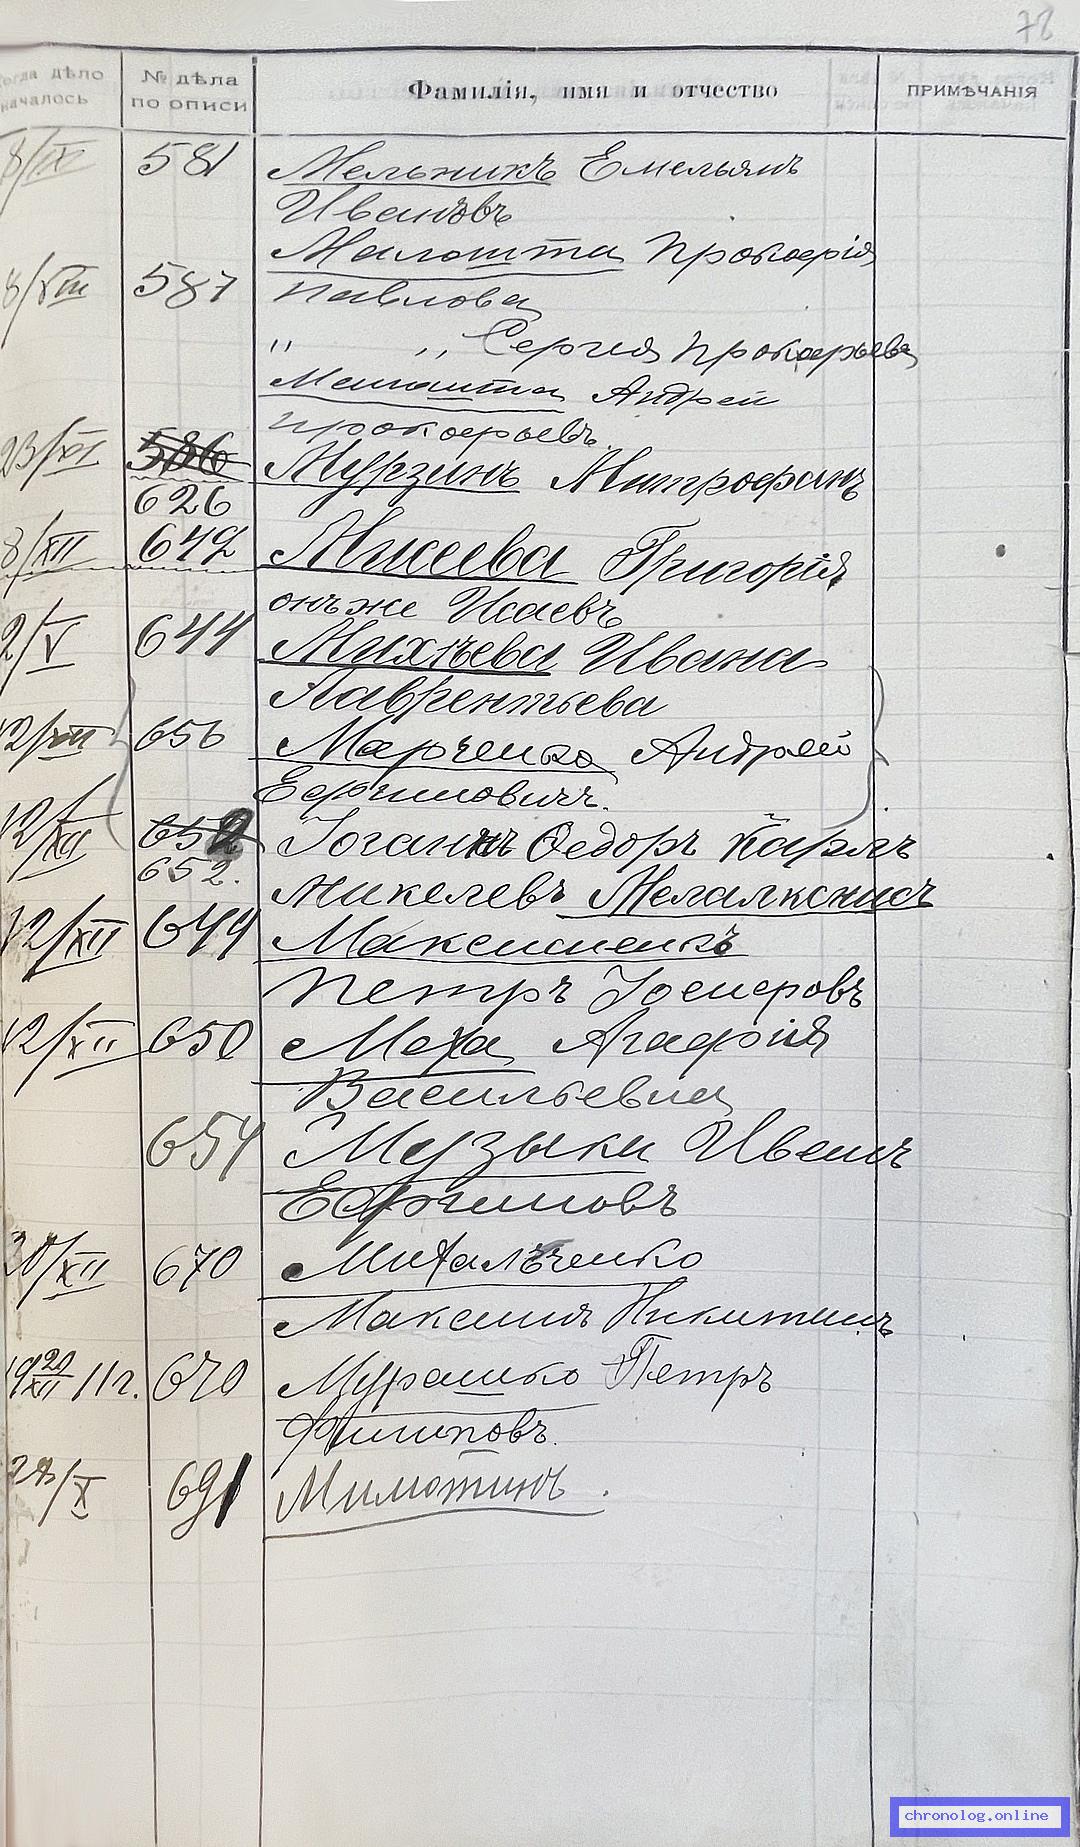 78
Когда дѣло началось
№ дѣла по описи
Фамилія, имя и отчество
ПРИМѢЧАНІЯ
8/IX 581 Мельникъ Емельянъ
Ивановъ
Малошта Прокофія
8/VIII 587 Павлова
" " Сергія Прокофьева
Малошта Андрей
Прокофьевъ.
23/XI 586 Мурзинъ Митрофанъ
626
8/XII 642 Мисеева Григорія
онъ же Исаевъ
2/V 644 Михѣева Ивана
Лаврентьева
12/XII 656 Марченко Андрей
Ефимовичъ.
12/XII 652 Іоганнъ Федоръ Карлъ
652. Микелевъ
12/XII 649 Максименкъ
Петръ Іосифовъ
12/XII 650 Моха Агафія
Васильевна
654 Музыки Иванъ
Ефимовъ
30/XII 670 Михальченко
Максимъ Никитинъ
19 20/XII 11 г. 670 Мурашко Петръ
Филиповъ.
28/X 691 Милютинъ.
chronolog.online